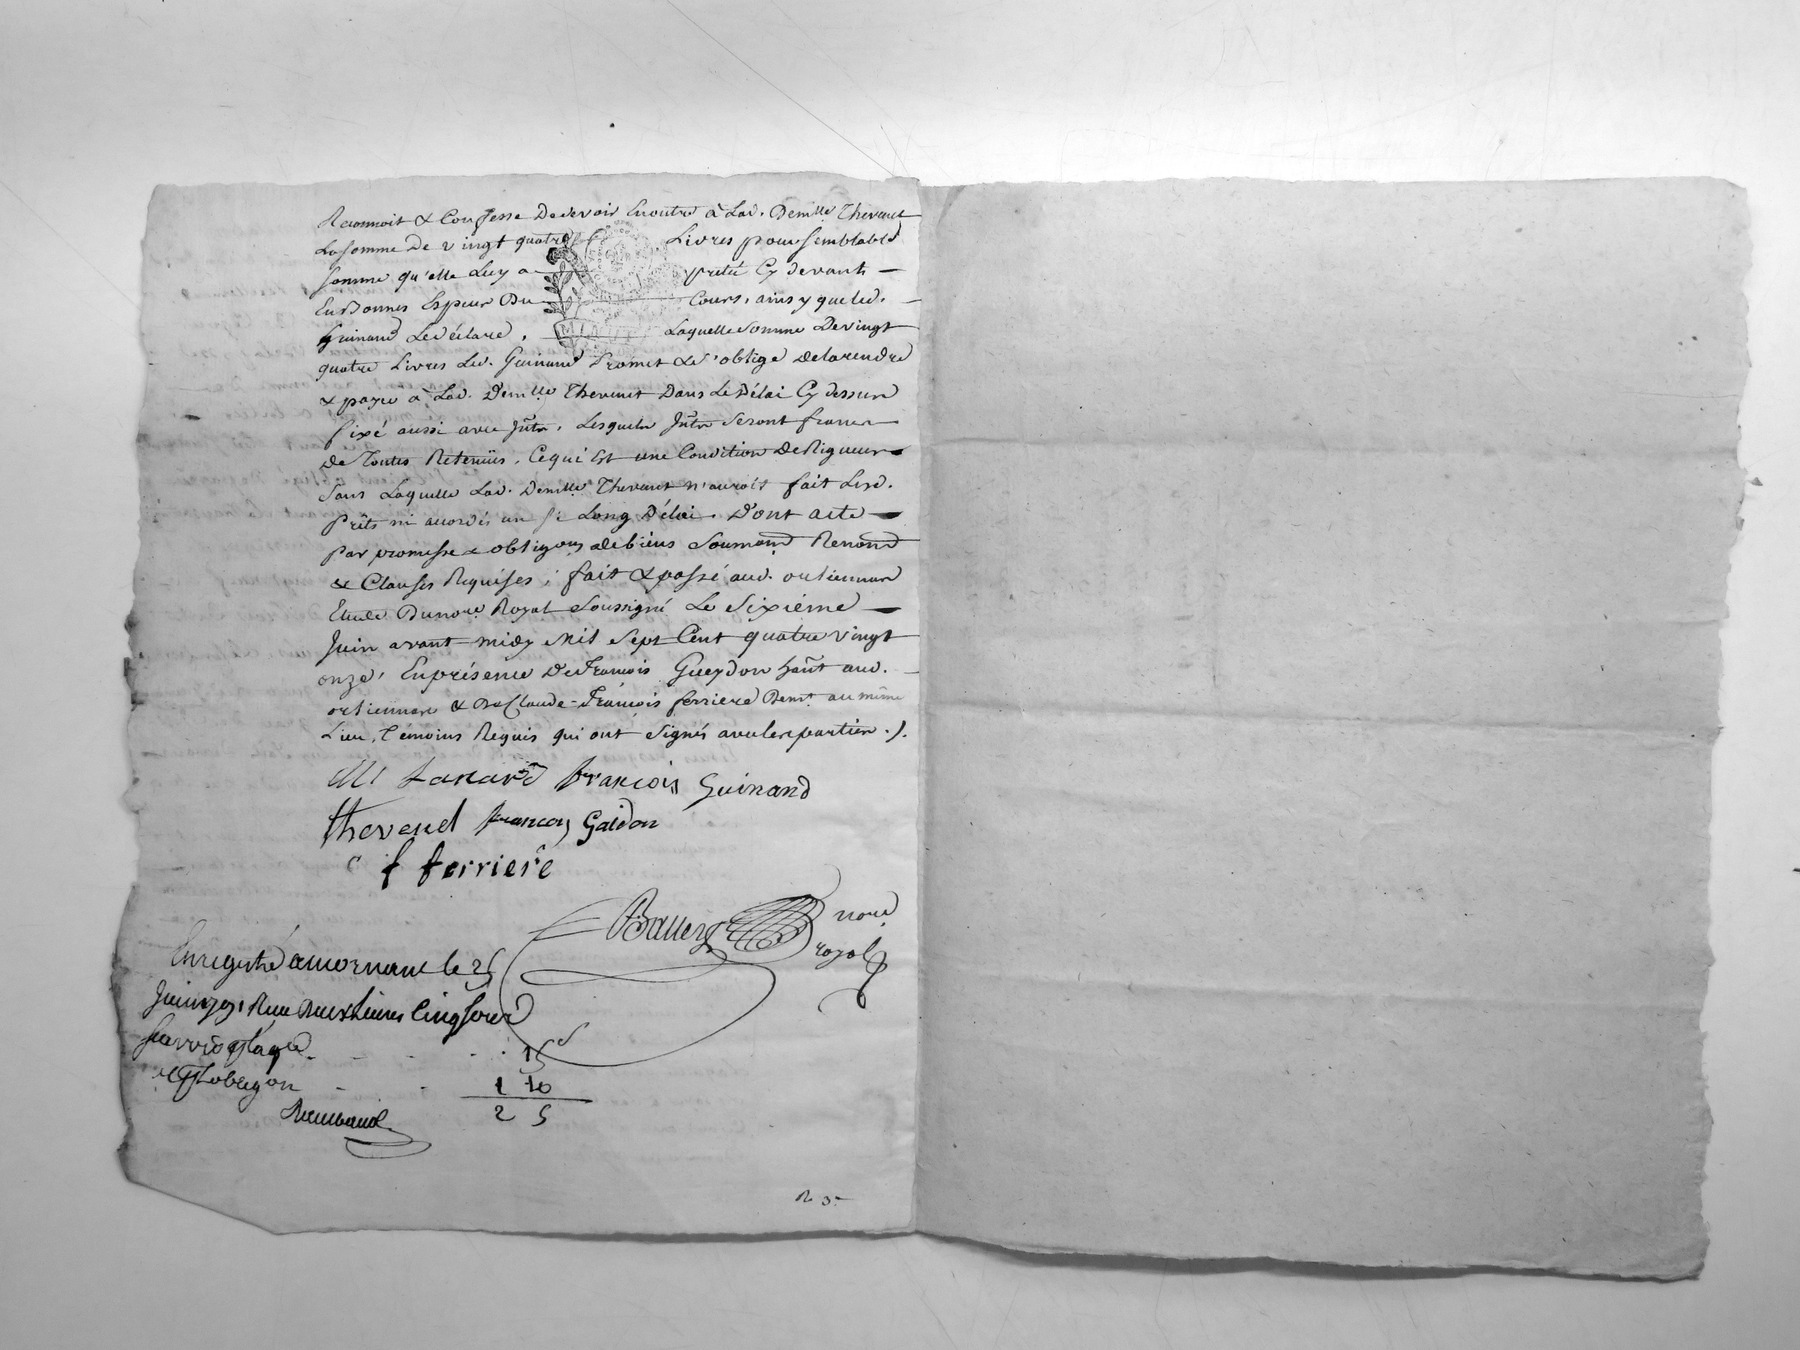 Reconnoit & Confesse Dedevoir Enoutre à Lad. Demlle Thevenet
La somme De vingt quatre Livres pour semblable
somme qu'elle Luy a prêté Cy devant
En Bonnes Especes Du Cours, ainsy que led.
Guinand Ledéclare, Laquelle somme De vingt
quatre Livres Led. Guinand Promet & s'oblige de la rendre
& payer à Lad. Demlle Thevenet Dans Le Délai Cy dessus
fixé aussi avec Jnts, Lesquels Jnts Seront francs
De Toutes Retenües, Ce qui Est une Condition De Rigueur
Sans Laquelle Lad. Demlle Thevenet n'auroit fait Lesd.
Prêts ni accordés un si Long Délai. Dont acte
Par promesse & obligaons de biens Soumond Renond
& Clauses Requises; fait & passé aud.
Etude Du nore Royal Soussigné Le Sixième
Juin avant midy Mil Sept Cent quatre vingt
onze, En présence De François Gueydon hant aud.
& De Claude-François ferriere Demt au même
Lieu, Témoins Requis qui ont Signés avec les parties ./.
françois Guinand
thevenet françois Gaidon
c f ferriere
nore
royal
Enregistré a mornant le 25
Juin 1791 Reçu Deux Livres Cinq sous
15 s
1 10
2 5
R 3